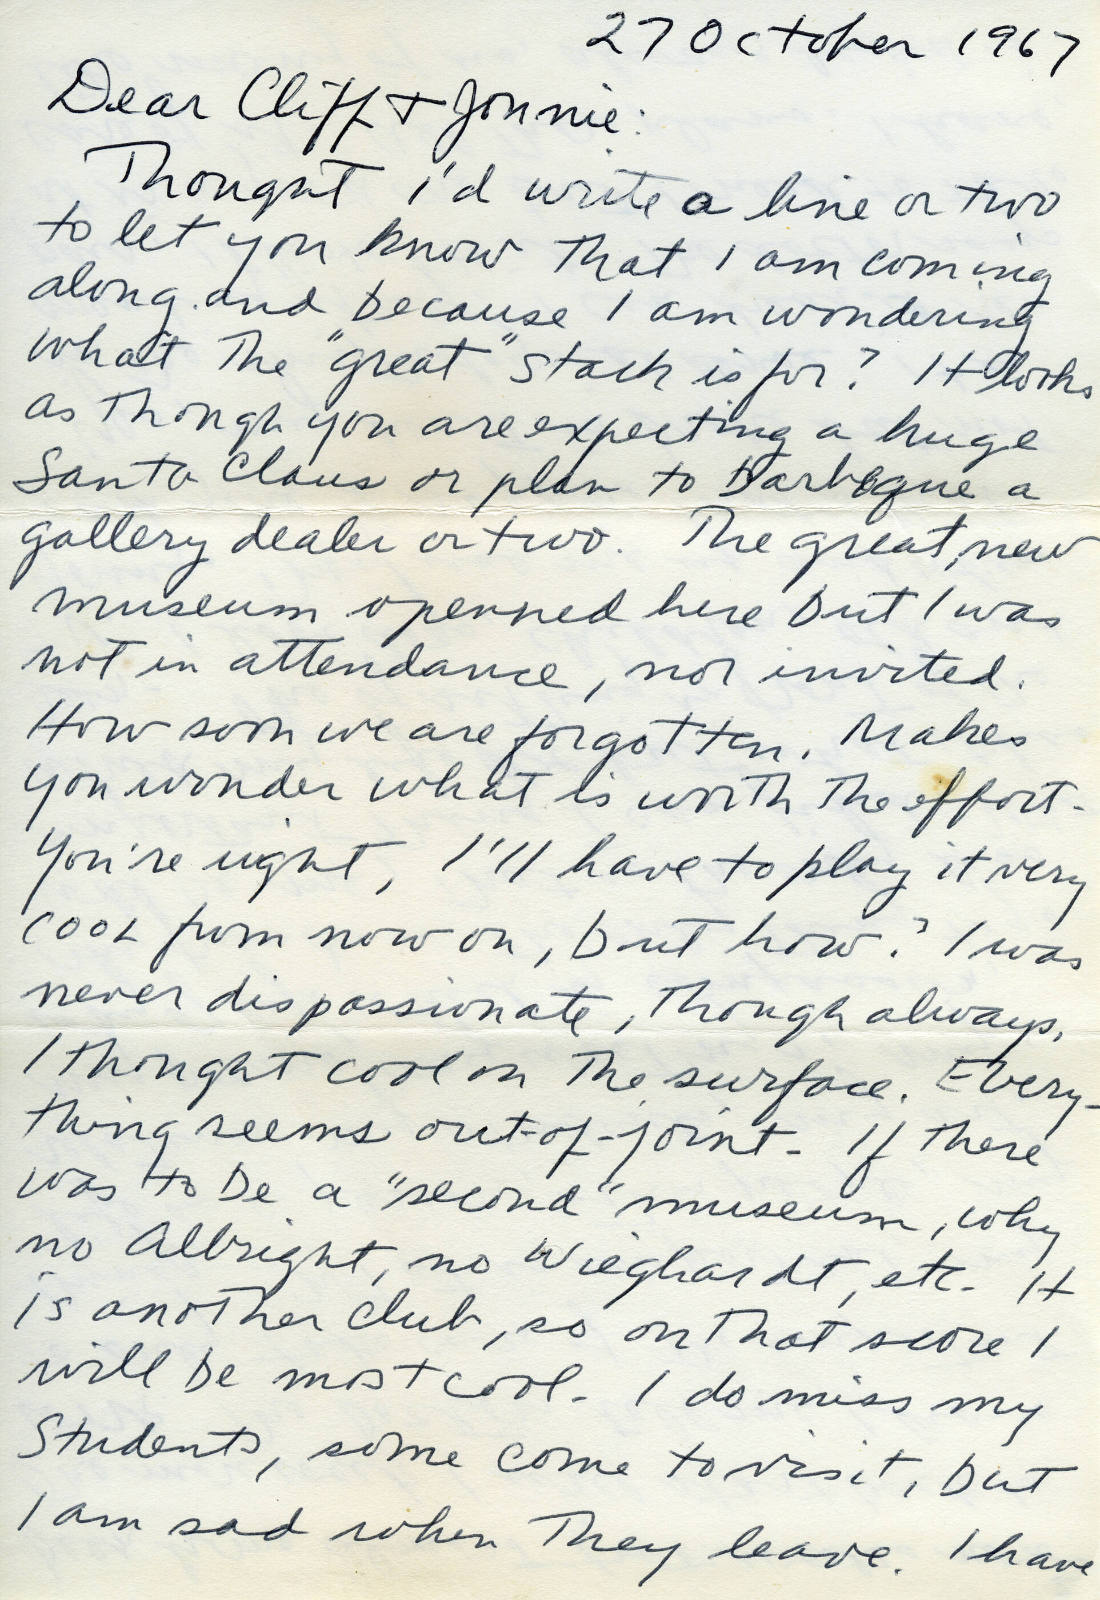 27 October 1967
Dear Cliff + Jonnie:
Thought i'd write a line or two
to let you know that I am coming
along and because I am wondering
what the "great" stack is for? It looks
as though you are expecting a huge
Santa Claus or plan to Barbeque a
gallery dealer or two. The great, new
museum openned here but I was
not in attendance, nor invited.
How soon we are forgotten. Makes
you wonder what is worth the effort-
You're right, I'll have to play it very
cool from now on, but how? I was
never dispassionate, though always,
I thought cool on the surface. Every-
thing seems out-of-joint- If there
was to be a "second" museum, why
no Albright, no Wieghardt, etc- It
is another club, so on that score I
will be most cool- I do miss my
students, some come to visit, but
I am sad when they leave. I have